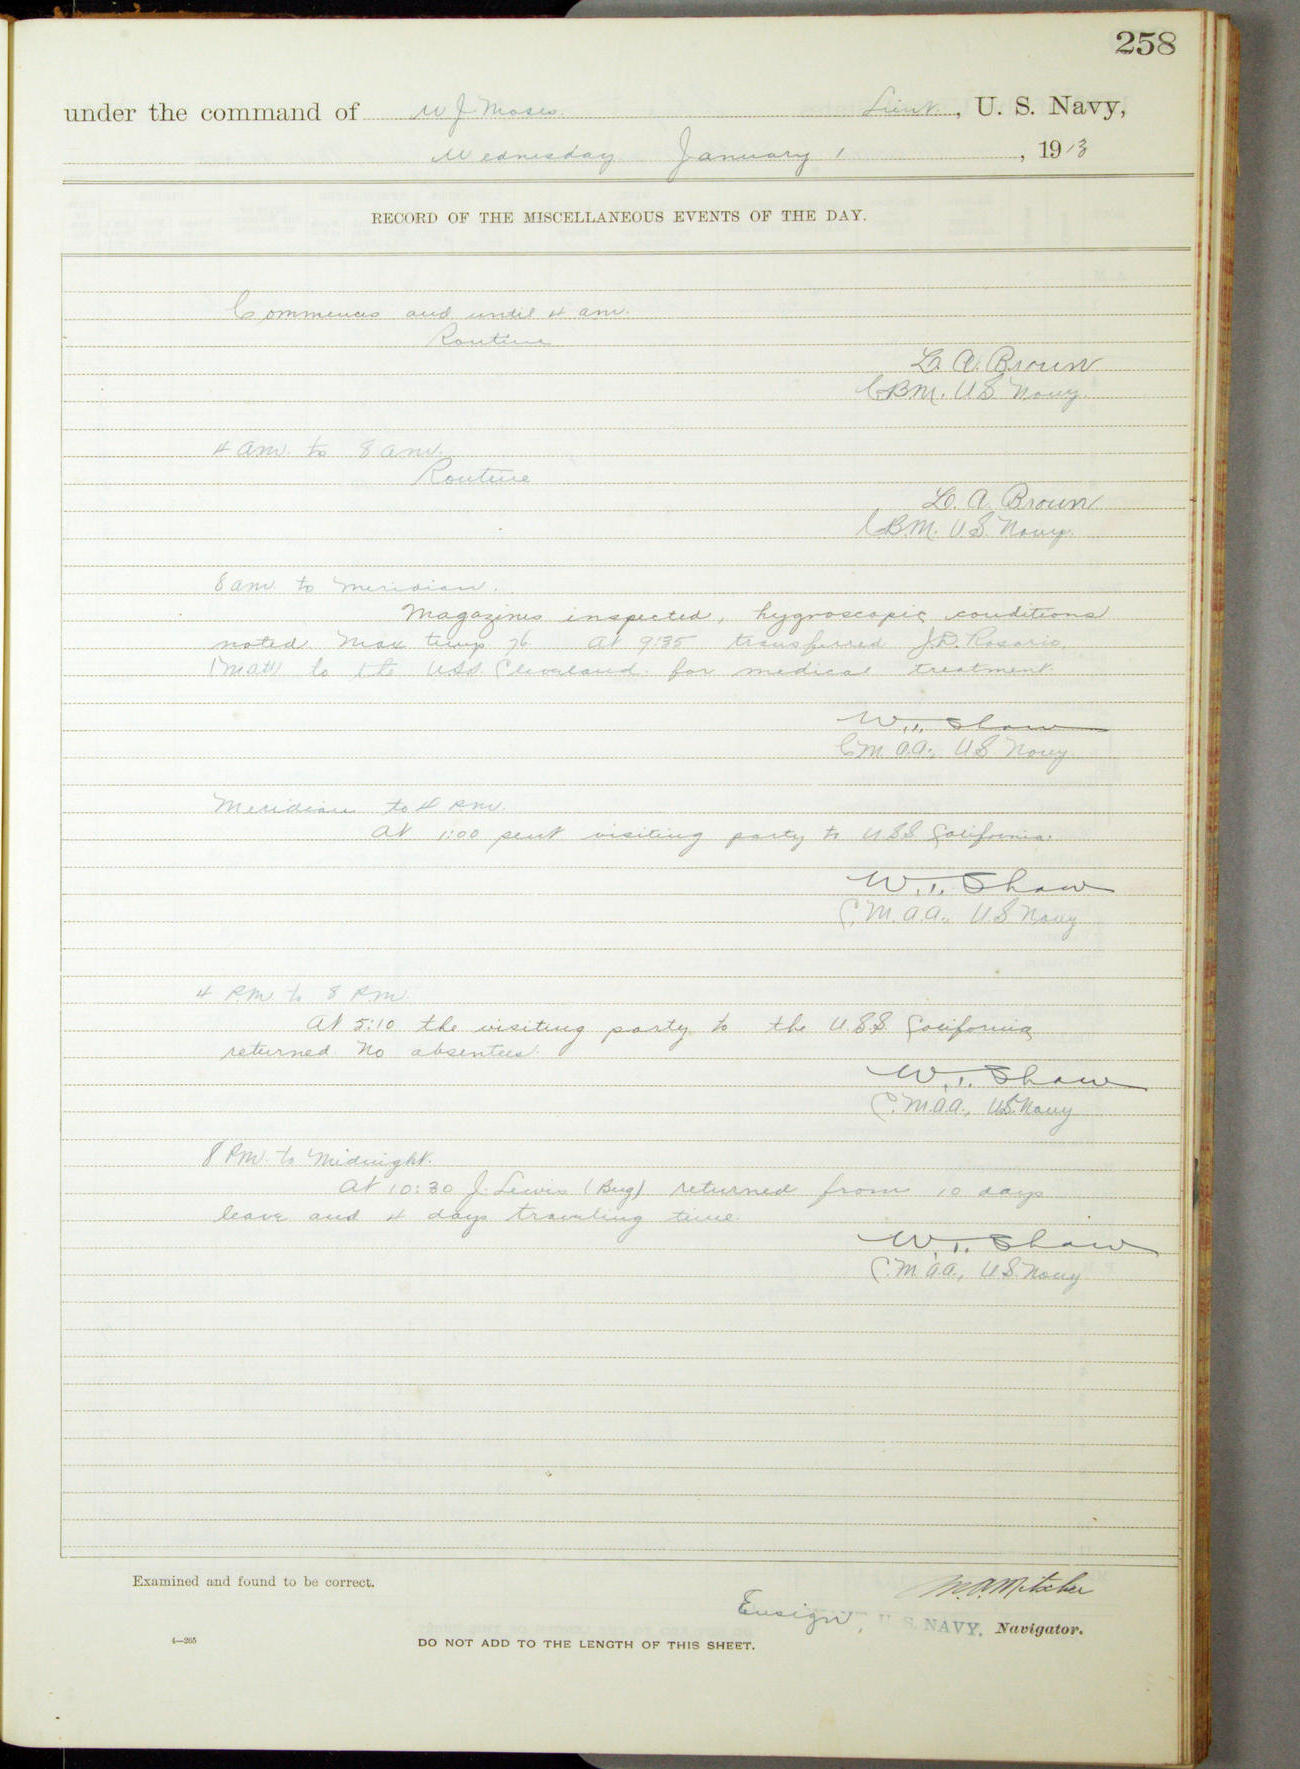 258
under the command of W J Moses. Lieut., U. S. Navy,
Wednesday January 1, 1913
RECORD OF THE MISCELLANEOUS EVENTS OF THE DAY.
Commences and until 4 am.
Routine
L. A. Broun
C.B.M. U.S. Navy.
4 am. to 8 am.
Routine
L. A. Broun
C.B.M. U.S. Navy.
8 am. to Meridian.
Magazines inspected, hygroscopic conditions
noted. Max temp 76 At 9:35 transferred J.D. Rosario,
to the U.S.S. Cleveland for medical treatment.
W. I. Shaw
C.M.A.A., U.S. Navy.
Meridian to 4 P.M.
At 1:00 sent visiting party to U.S.S. California.
W. I. Shaw
C.M.A.A., U.S. Navy
4 P.M. to 8 P.M.
At 5:10 the visiting party to the U.S.S. California
returned. No absentees.
W. I. Shaw
C.M.A.A., U.S. Navy
8 P.M. to Midnight.
At 10:30 J. Lewis (Bug) returned from 10 days
leave and 4 days traveling time.
W. I. Shaw
C.M.A.A., U.S. Navy
Examined and found to be correct.
M. A. Mitscher
Ensign, U. S. NAVY, Navigator.
4—265
DO NOT ADD TO THE LENGTH OF THIS SHEET.